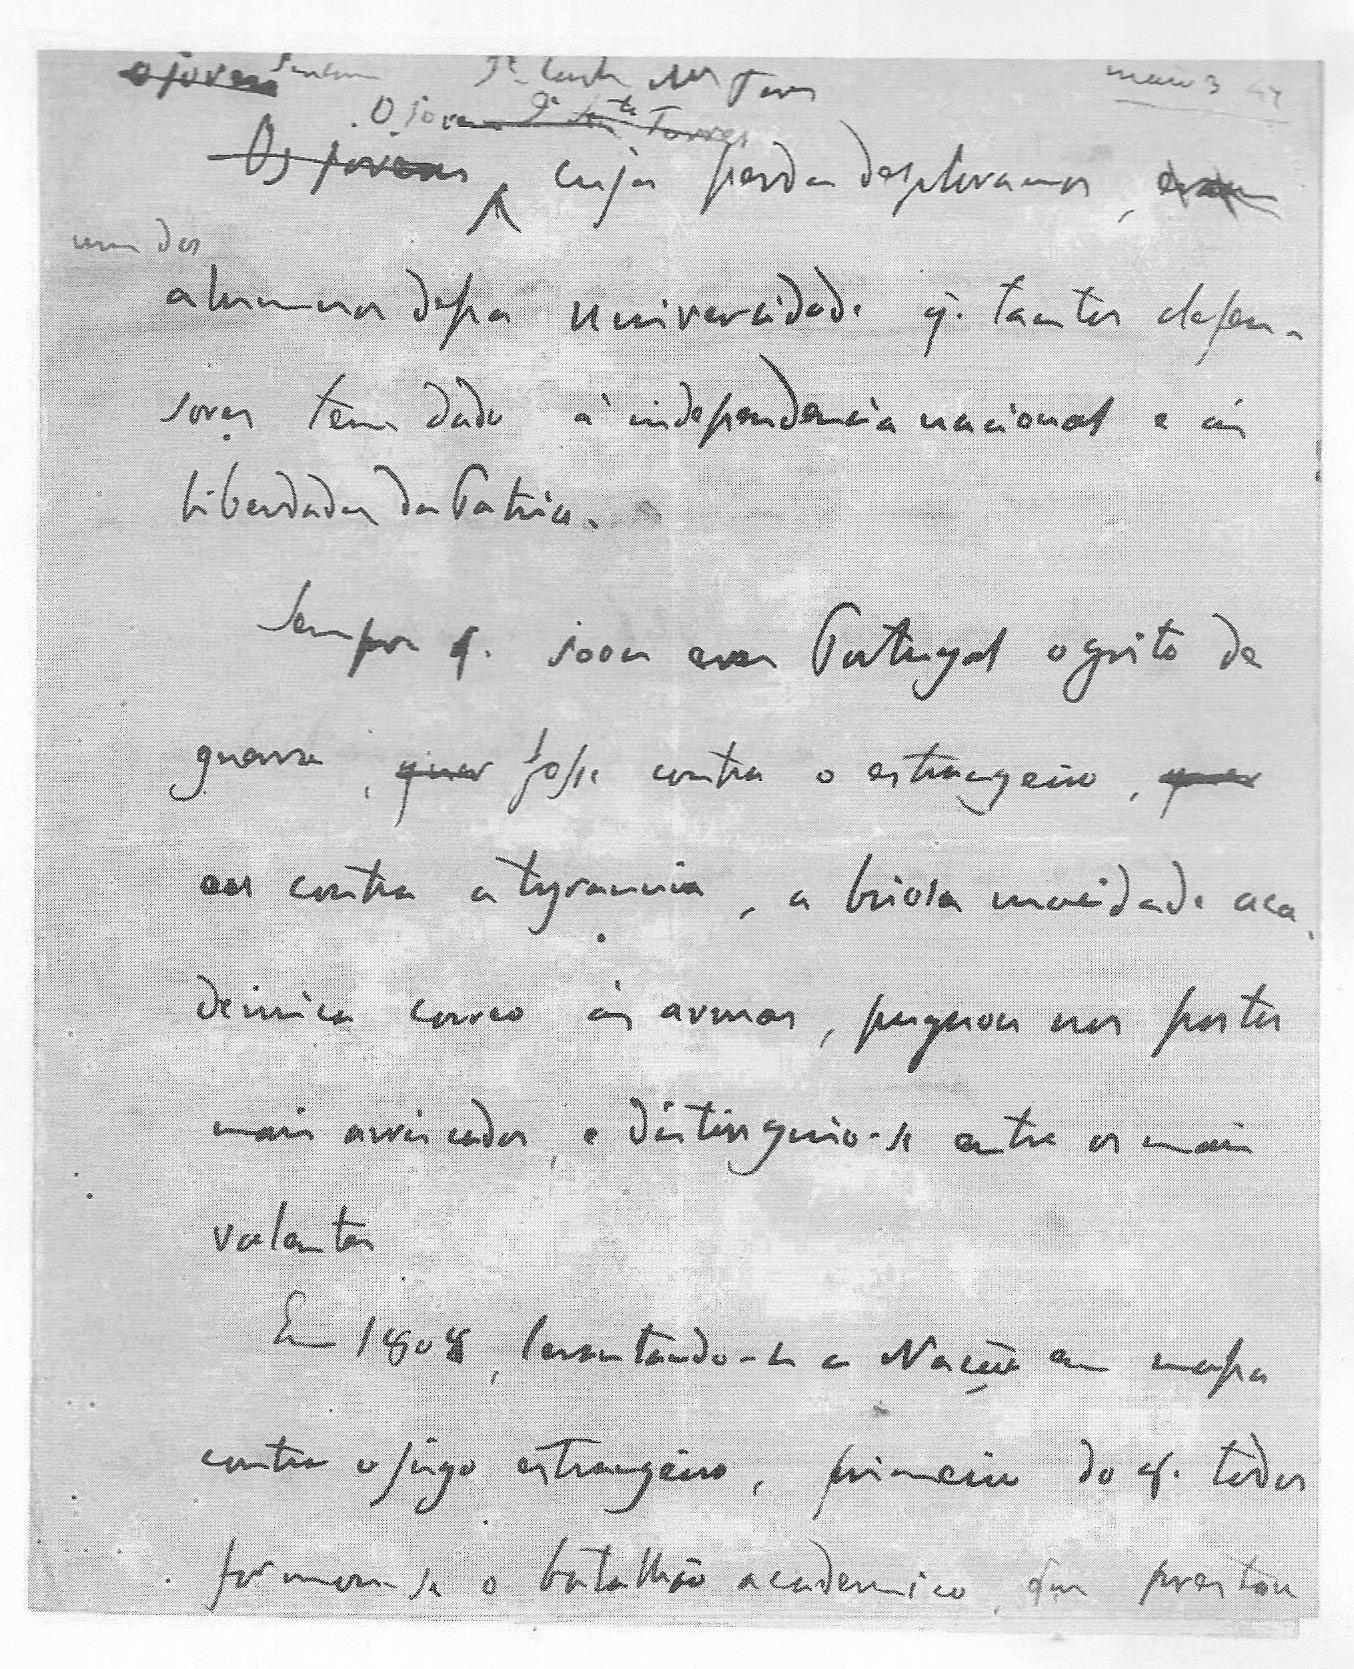 o joven
maio 3 47
O joven Torres
Os jovens, cuja perda deploramos, eram
um dos
alumnos dessa universidade q. tantos defen-
sores tem dado á independencia nacional e ás
liberdades da Patria.
Sempre q. soou em Portugal o grito de
guerra, quer fosse contra o estrangeiro, quer
ou contra a tyrannia, a briosa mocidade aca-
demica correo ás armas, pugnou nos postos
mais arriscados, e distinguio-se entre os mais
valentes
Em 1808, levantando-se a Nação em massa
contra o jugo estrangeiro, primeiro do q. todos
formou-se o batalhão academico, que prestou